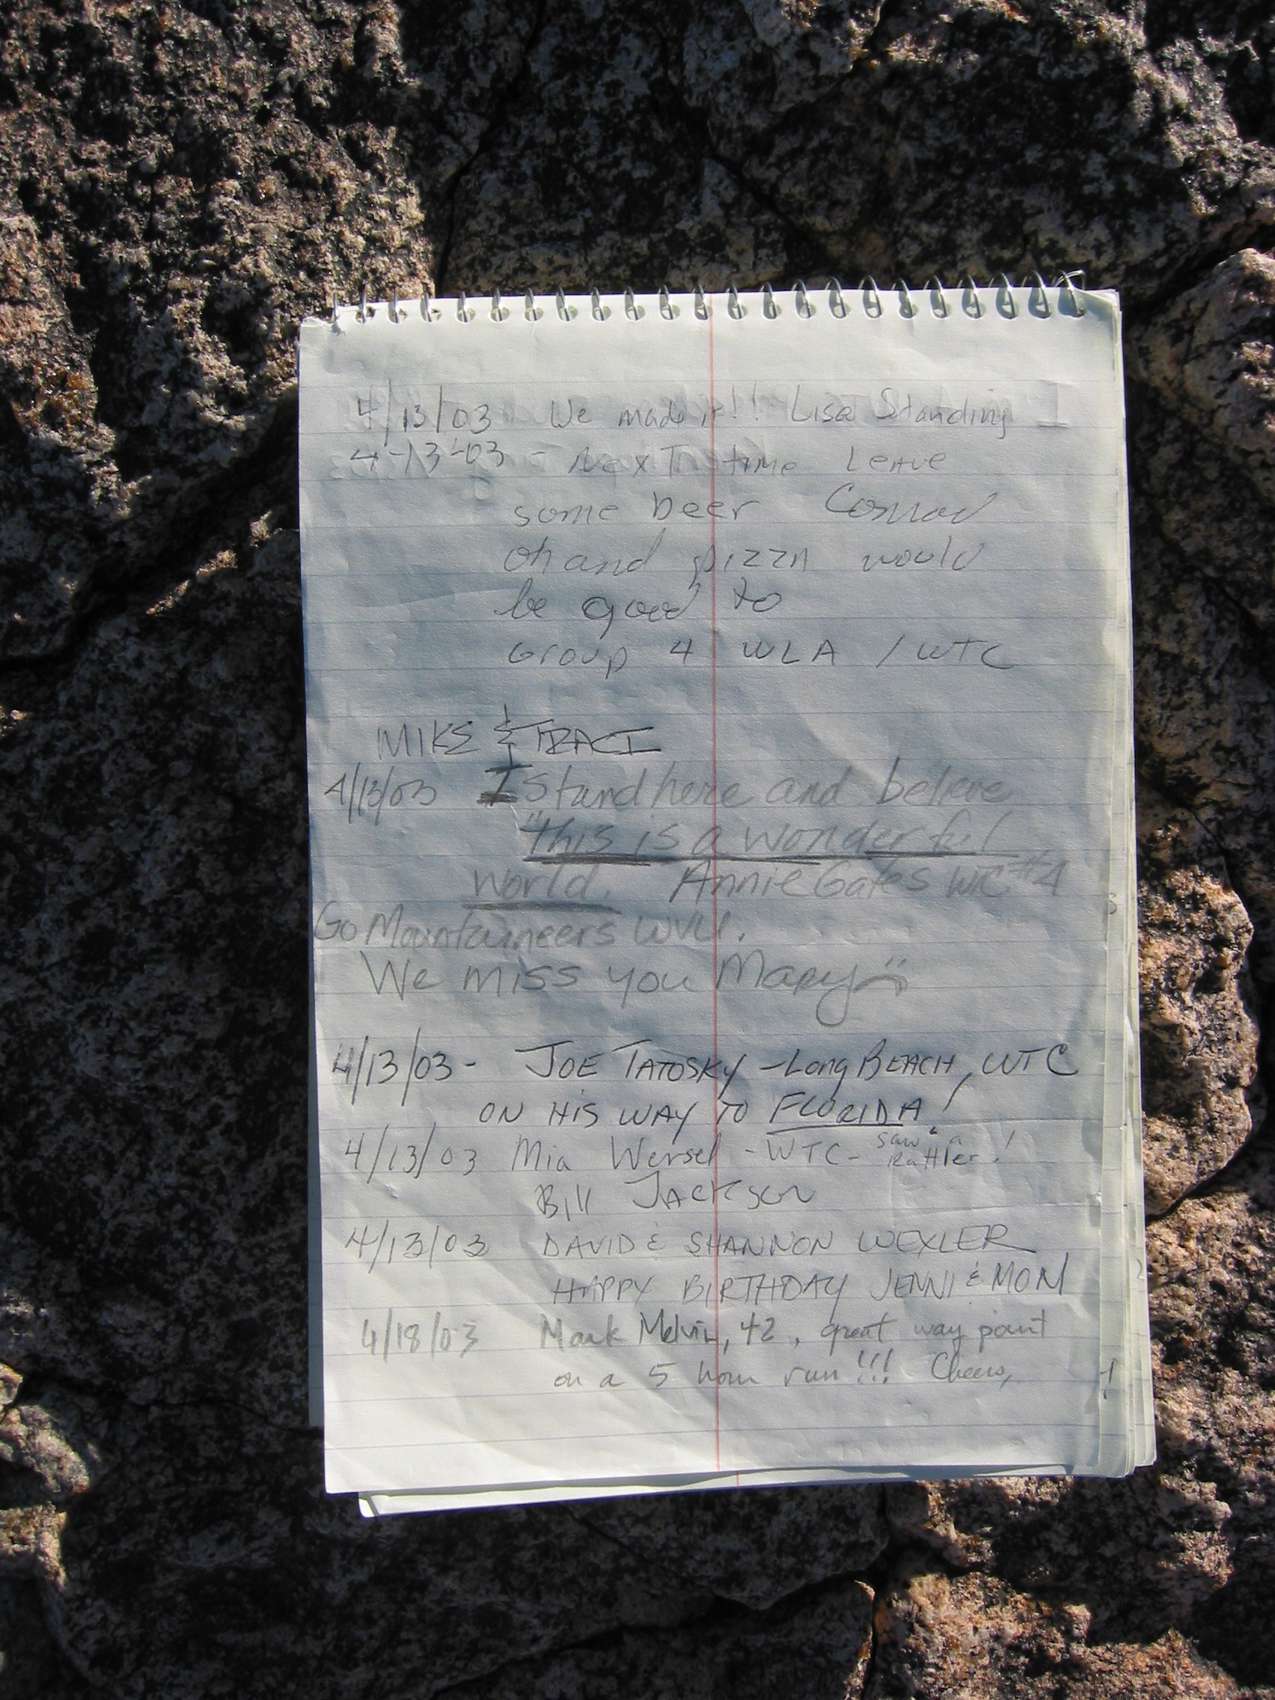 4/13/03 We made it!! Lisa Standing
4-13-03 - Next time Leave
some beer Conrad
oh and pizza would
be good to
Group 4 WLA / WTC
MIKE & TRACI
4/13/03 I stand here and believe
"this is a wonderful
world. Annie Gates WTC #4
Go Mountaineers WVU.
We miss you Mary
4/13/03 - JOE TATOSKY - Long BEACH, WTC
ON HIS WAY TO FLORIDA!
4/13/03 Mia Wersel - WTC - saw a rattler!
Bill JACKSON
4/13/03 DAVID & SHANNON WEXLER
HAPPY BIRTHDAY JENNI & MOM
4/18/03 Mark Melvin, 42, great way point
on a 5 hour run!!! Cheers,